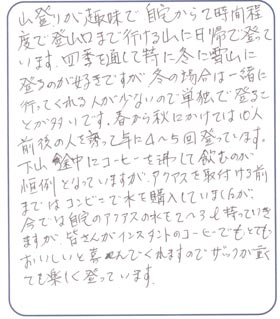 山登りが趣味で自宅から2時間程
度で登山口まで行ける山に日帰で登って
います。四季を通して特に冬に雪山に
登るのが好きですが冬の場合は一緒に
行ってくれる人が少ないので単独で登るこ
とが多いです。春から秋にかけては10人
前後の人を誘って年に4〜5回登っています。
下山途中にコーヒーを沸して飲むのが
恒例となっていますが、アクアスを取付ける前
まではコンビニで水を購入していましたが
今では自宅のアクアスの水を2〜3ℓ持っていき
ますが、皆さんがインスタントのコーヒーでもとても
おいしいと喜んでくれますのでザックが重く
ても楽しく登っています。